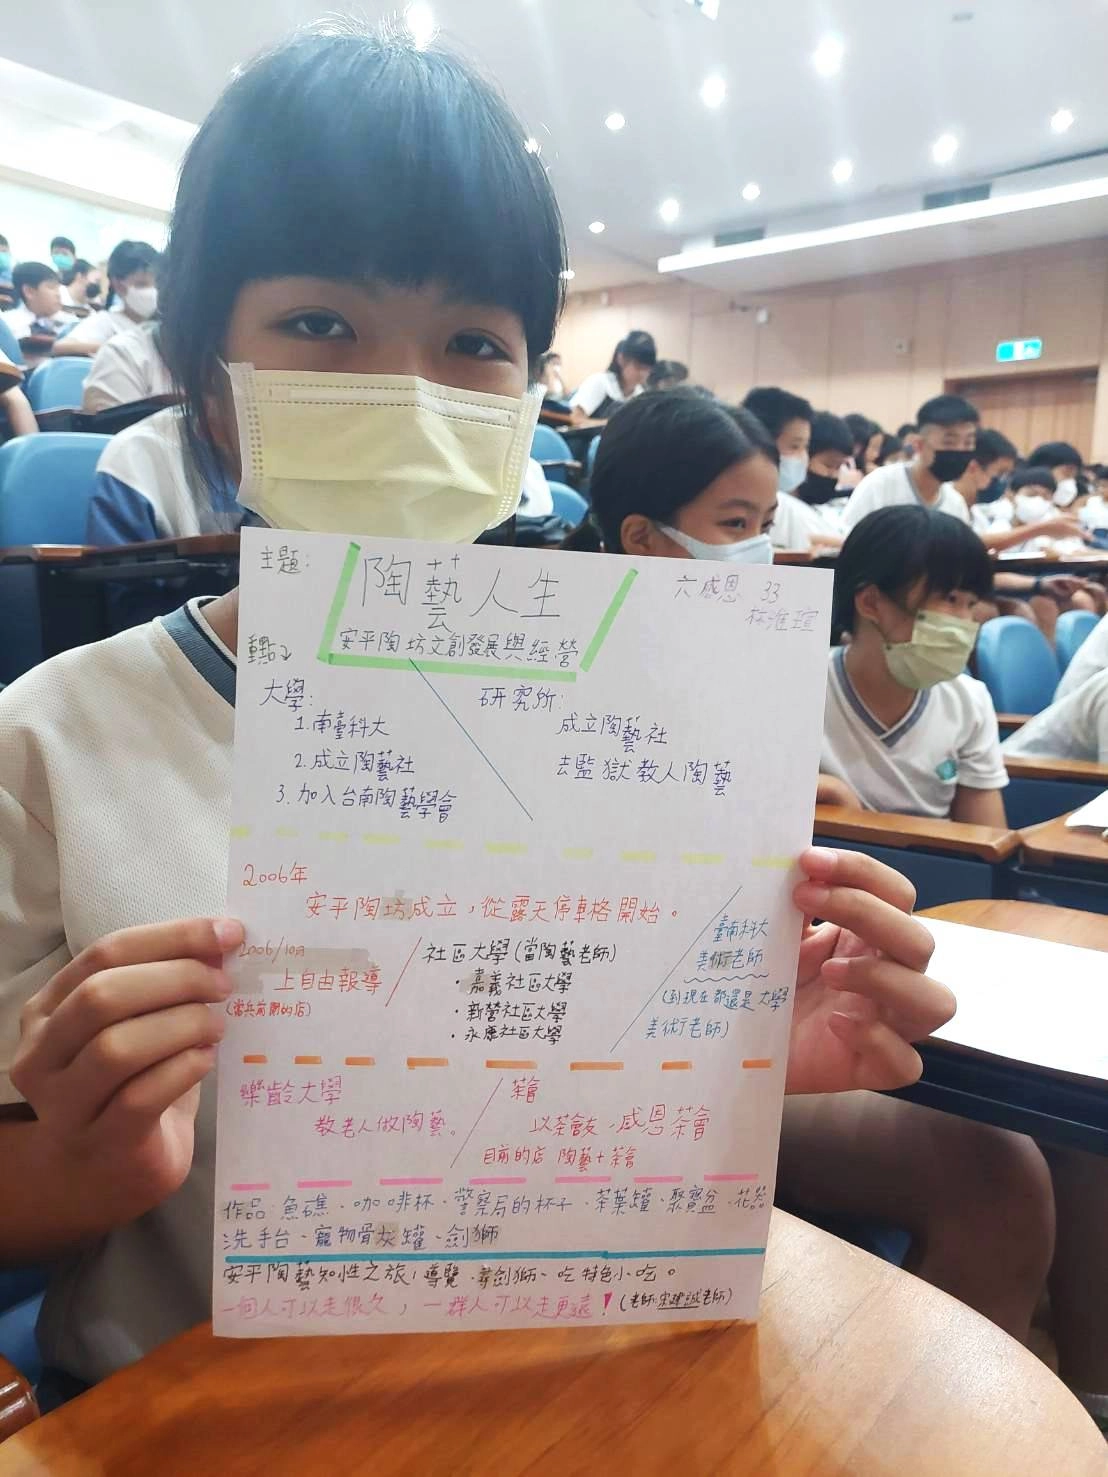 主題:
陶藝人生
六感恩 33
林淮瑄
安平陶坊文創發展與經營
重點↴
大學:
1.南臺科大
2.成立陶藝社
3.加入台南陶藝學會
研究所:
成立陶藝社
去監獄教人陶藝
2006年
安平陶坊成立,從露天停車格開始。
2006/10月
上自由報導
(當兵前開的店)
社區大學(當陶藝老師)
·嘉義社區大學
·新營社區大學
·永康社區大學
臺南科大
美術老師
(到現在都還是大學
美術老師)
樂齡大學
教老人做陶藝。
茶會
以茶會友,感恩茶會
目前的店 陶藝+茶會
作品:魚礁、咖啡杯、警察局的杯子、茶葉罐、聚寶盆、花器
洗手台、寵物骨灰罐、劍獅
安平陶藝知性之旅:導覽、尋劍獅、吃特色小吃。
一個人可以走很久,一群人可以走更遠!(老師:宋建誠老師)